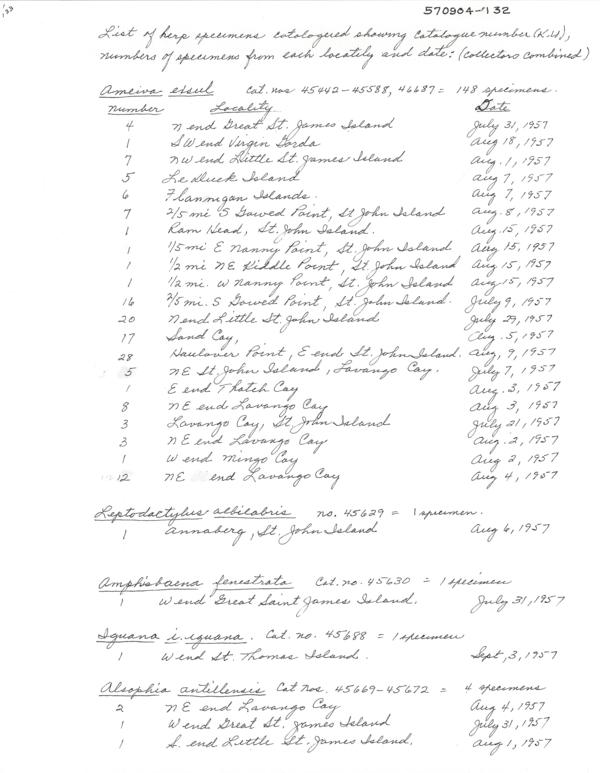 '33
570904-'132
List of herp specimens catalogued showing catalogue number (K.U),
numbers of specimens from each locatily and date: (collectors combined)
Ameiva exsul Cat. nos 45442-45588, 46687 = 148 specimens.
number Locality Date
4 N end Great St. James Island July 31, 1957
1 SW end Virgin Gorda Aug 18, 1957
7 NW end Little St. James Island Aug. 1, 1957
5 Le Duck Island Aug 7, 1957
6 Flannigan Islands. Aug 7, 1957
7 2/5 mi S Gowed Point, St John Island Aug. 8, 1957
1 Ram Head, St. John Island. Aug. 15, 1957
1 1/5 mi E Nanny Point, St. John Island Aug 15, 1957
1 1/2 mi NE Kiddle Point, St. John Island Aug 15, 1957
1 1/2 mi. W Nanny Point, St. John Island Aug. 15, 1957
16 2/5 mi. S Gowed Point, St. John Island. July 9, 1957
20 N end Little St. John Island July 29, 1957
17 Sand Cay, Aug. 5, 1957
28 Haulover Point, E end St. John Island. Aug, 9, 1957
5 NE St John Island, Lovango Cay. July 7, 1957
1 E end Thatch Cay Aug. 3, 1957
8 NE end Lovango Cay Aug 3, 1957
3 Lovango Cay, St. John Island July 21, 1957
3 NE end Lovango Cay Aug. 2, 1957
1 W end Mingo Cay Aug 2, 1957
12 NE end Lovango Cay Aug 4, 1957
Leptodactylus albilabris no. 45629 = 1 specimen.
1 Annaberg, St. John Island Aug 6, 1957
Amphisbaena fenestrata Cat. no. 45630 = 1 specimen
1 W end Great Saint James Island. July 31, 1957
Iguana i. iguana. Cat. no. 45688 = 1 specimen
1 W end St. Thomas Island. Sept, 3, 1957
Alsophis antillensis Cat nos. 45669-45672 = 4 specimens
2 NE end Lovango Cay Aug 4, 1957
1 W end Great St. James Island July 31, 1957
1 S. end Little St. James Island. Aug 1, 1957